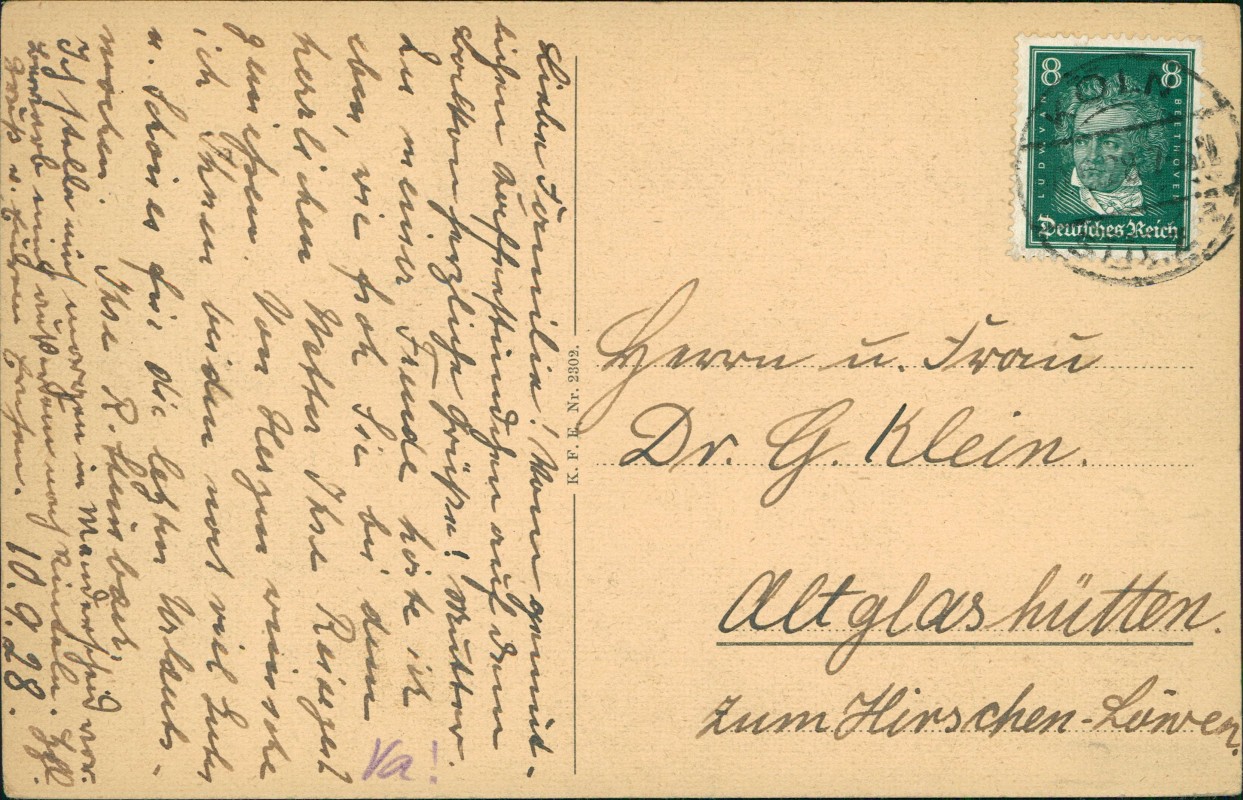 Liebe Familie! Vom gemüt-
lichen Kaffeestündchen auf dem
Balkon herzliche Grüße! Mutter.
Zu meiner Freude hörte ich
eben, wie froh Sie bei dem
herrlichen Wetter Ihre Reisezeit
genießen. Von Herzen wünsche
ich Ihnen beiden noch viel Gutes
u. Schönes für die letzten Urlaubs-
wochen. Ihre R.
Ich stelle mich morgen in Manderscheid vor.
mich außerdem noch
Gruß u.
10.9.28.
Va!
K. F. E. Nr. 2302.
8 8
LUDWIG VAN BEETHOVEN
Deutsches Reich
KÖLN
Herrn u. Frau
Dr. G. Klein.
Altglashütten.
zum Hirschen-Löwen.